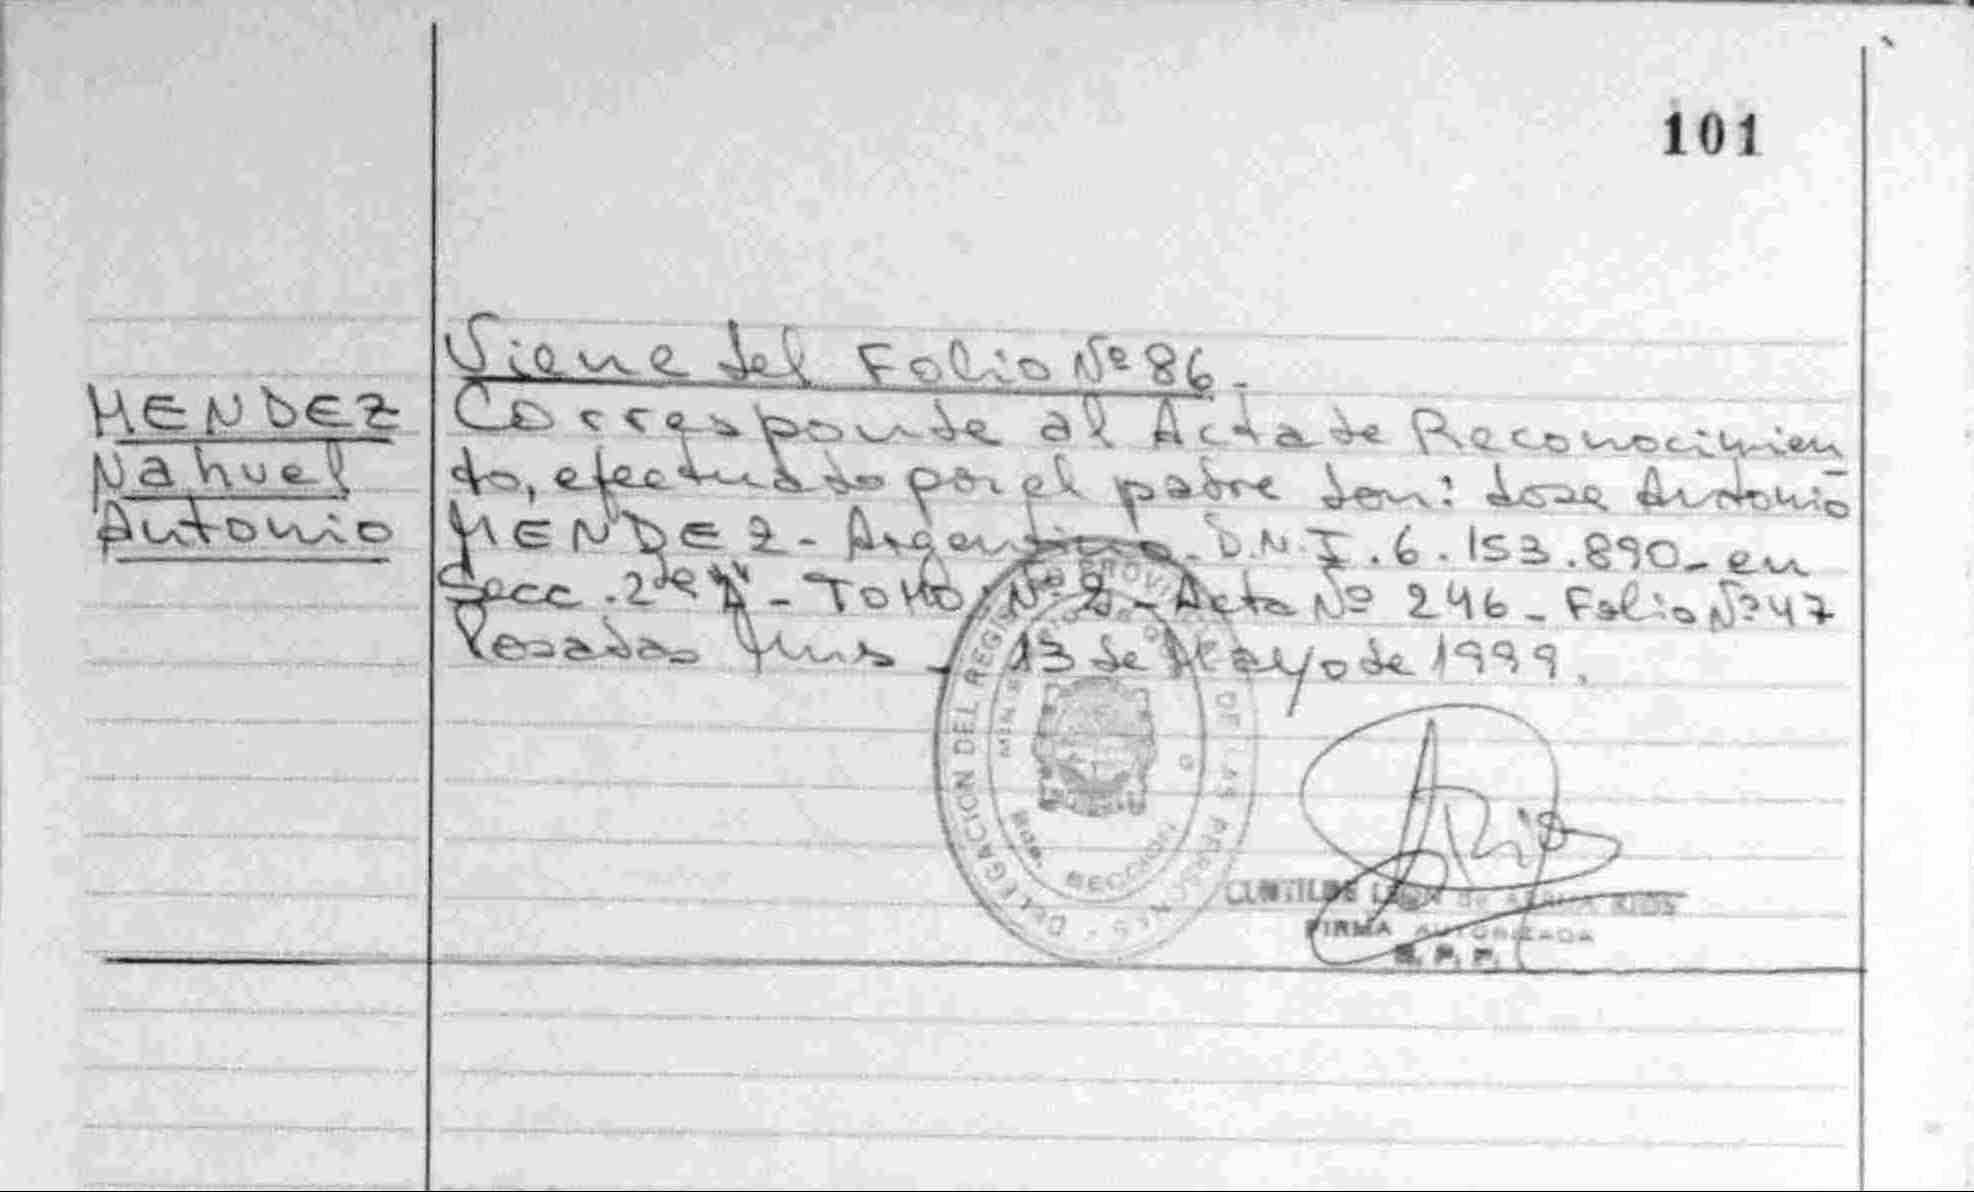 101
Viene del Folio Nº 86.
MENDEZ
Nahuel
Antonio
Corresponde al Acta de Reconocimien
to, efectuado por el padre don: Jose Antonio
MENDEZ - Argentino - D.N.I. 6.153.890 - en
Secc. 2de "A" - TOMO Nº 2 - Acta Nº 246 - Folio Nº 47
Posadas Mns - 13 de Mayo de 1999.
DELEGACION DEL REGISTRO PROVINCIAL DE LAS PERSONAS
ARios
CLOTILDE LEON DE RIOS
FIRMA AUTORIZADA
R. P. P.